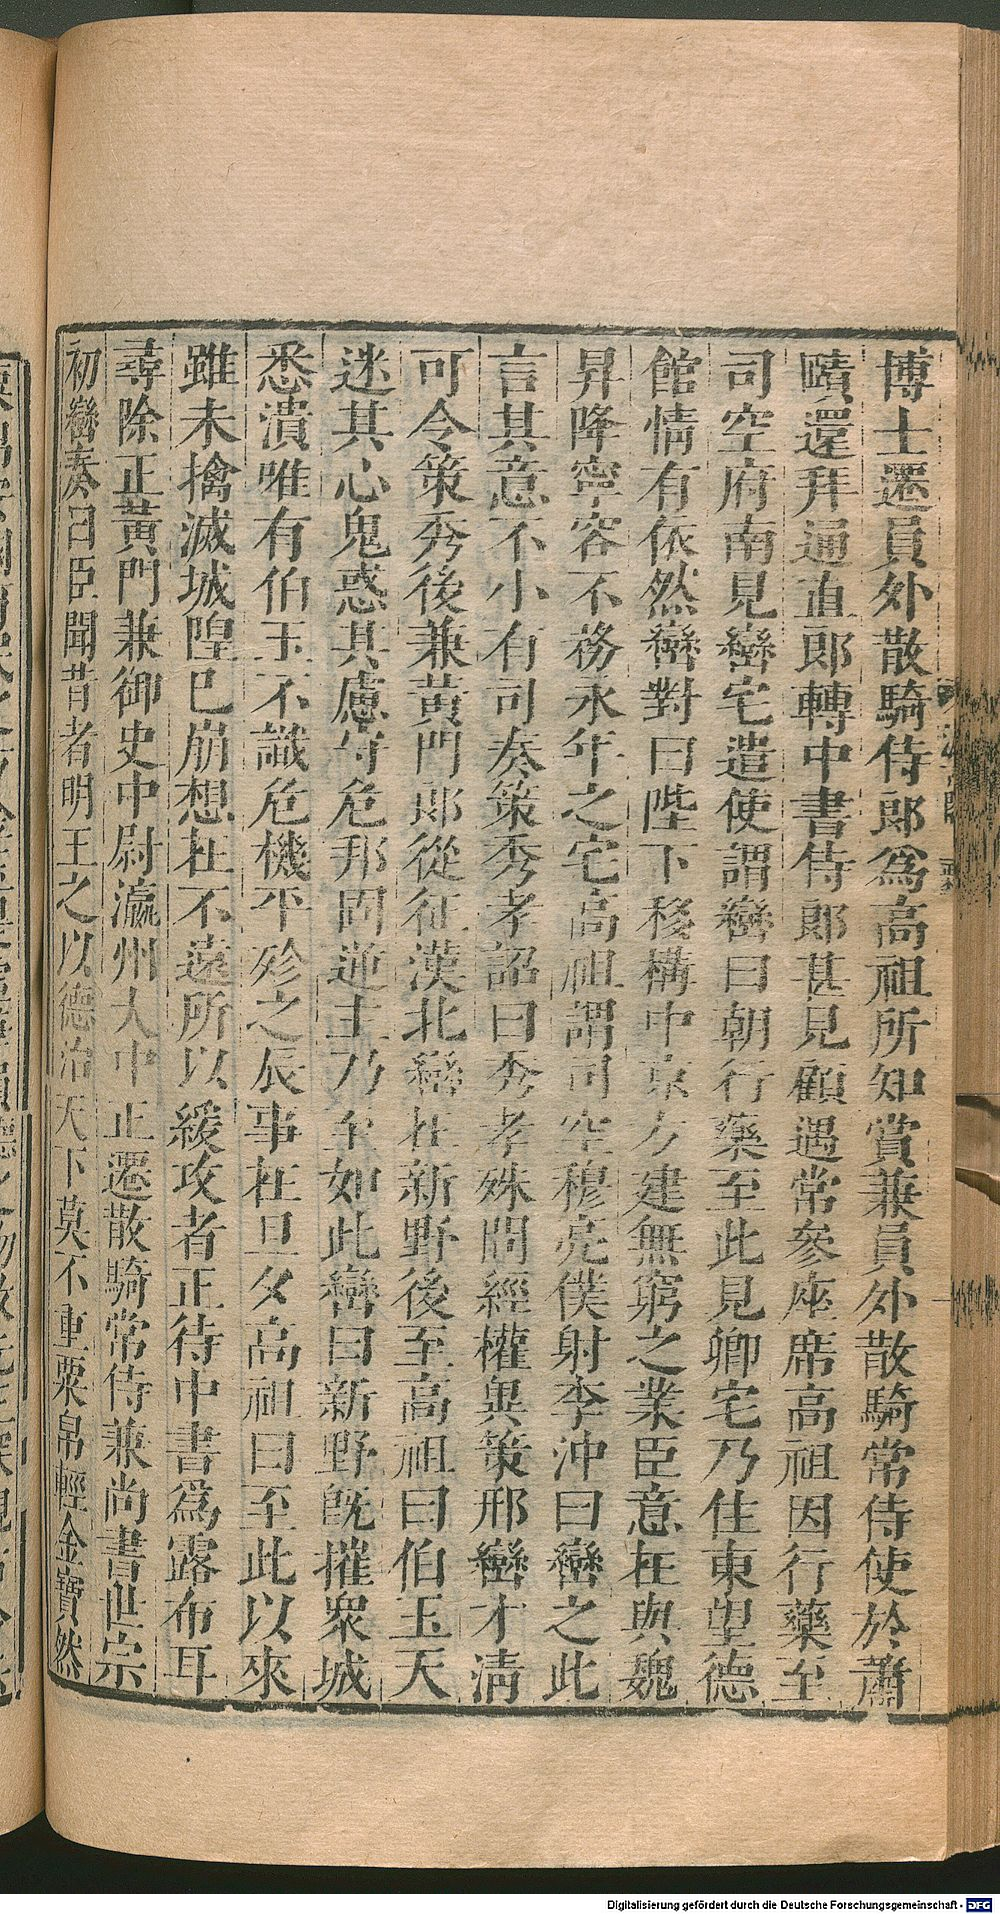 博士遷員外散騎侍郎爲高祖所知賞兼員外散騎常侍使於蕭
賾還拜通直郎轉中書侍郎甚見顧遇常參座席高祖因行藥至
司空府南見巒宅遣使謂巒曰朝行藥至此見卿宅乃住東望德
館情有依然巒對曰陛下移構中京方建無窮之業臣意在與魏
昇降寧容不務永年之宅高祖謂司空穆亮僕射李沖曰巒之此
言其意不小有司奏策秀孝詔曰秀孝殊問經權異策邢巒才清
可令策秀後兼黃門郎從征漢北巒在新野後至高祖曰伯玉天
迷其心鬼惑其慮守危邦固逆主乃至如此巒曰新野旣摧衆城
悉潰唯有伯玉不識危機平殄之辰事在旦夕高祖曰至此以來
雖未擒滅城隍已崩想在不遠所以緩攻者正待中書爲露布耳
尋除正黃門兼御史中尉瀛州大中正遷散騎常侍兼尚書世宗
初巒奏曰臣聞昔者明王之以德治天下莫不重粟帛輕金寶然
Digitalisierung gefördert durch die Deutsche Forschungsgemeinschaft - DFG